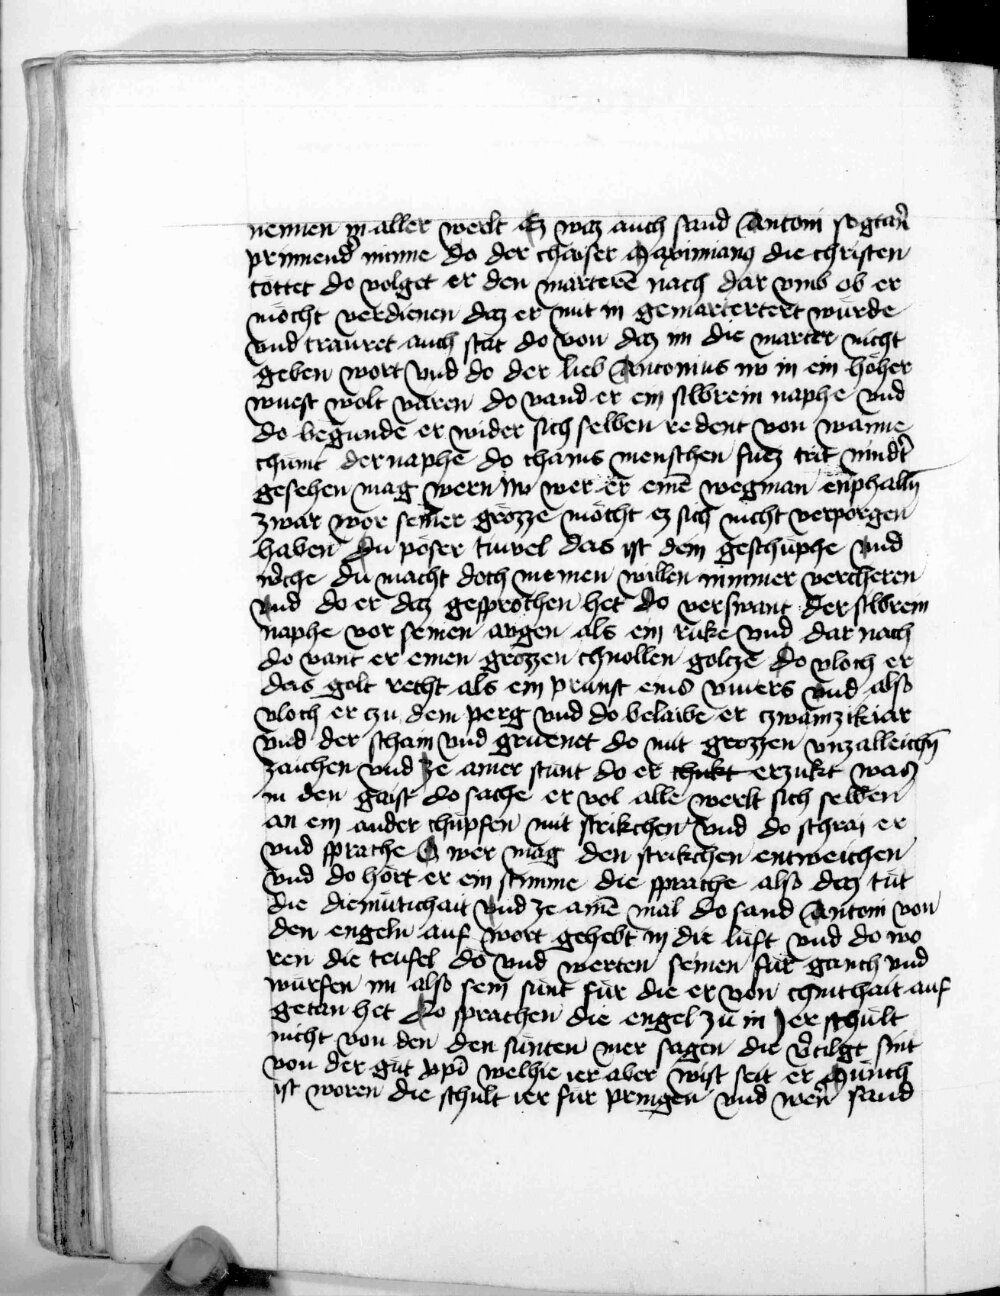 nemen in aller werlt Ez waz auch sand Antoni sogtan̄
prinnend̾ minne do der chaiser Maximian9 die christen
tottet do volget er den marterē nach dar vmb ob er
möcht verdienen daz er mit in gemartertert wurde
vnd trauret auch stät do von daz im die marter nicht
geben wort Vnd do der lieb Antonius nv in ein höher
wuest wolt varen do vand er ein silbrein naphe vnd
do begunde er wider sich selben redent von wanne
chumt der naphe do chains menschen fuez trit nindt̾
gesehen mag wern Nv wer er einē wegman enphallū
zwar vor seiner grözze möcht ez sich nicht verporgen
haben Du pöser tiuvel das ist dein geschuphe vnd
du macht doch meinen willen nimmer vercheren
vnd do er daz gesprochen het do verswant der silbrein
naphe vor seinen augen als ein rauke vnd dar nach
do vant er einen grozzen chnollen goltze do vloch er
das golt recht als ein prunst eins viuers vnd also
vloch er czu dem perg vnd do belaibe er czwainzikiar
vnd der scham vnd gruenet do mit grozzen vnzalleichn̄
zaichen vnd ze ainer stunt do er erzukt was
in den gaist do sache er vol alle werlt sich selben
an ein ander chüpfen mit strikchen vnd do schrai er
vnd sprache O wer mag den strikchen entweichen
vnd do hört er ein stimme die sprache also daz tut
die diemütichait vnd ze ainē mal do sand Antoni von
den engeln auf wort gehebt in die luft vnd do wo
ren die teufel do vnd werten seinen für ganch vnd
wurfen im also sein sunt für die er von chinthait auf
getan het Do sprachen die engel zu in Jer schült
nicht von den den sünten mer sagen die v̾tilgt sint
von der güt xpī welhie ier aber wist seit er Münch
ist woren die schult ier für pringen vnd wen̄ sand